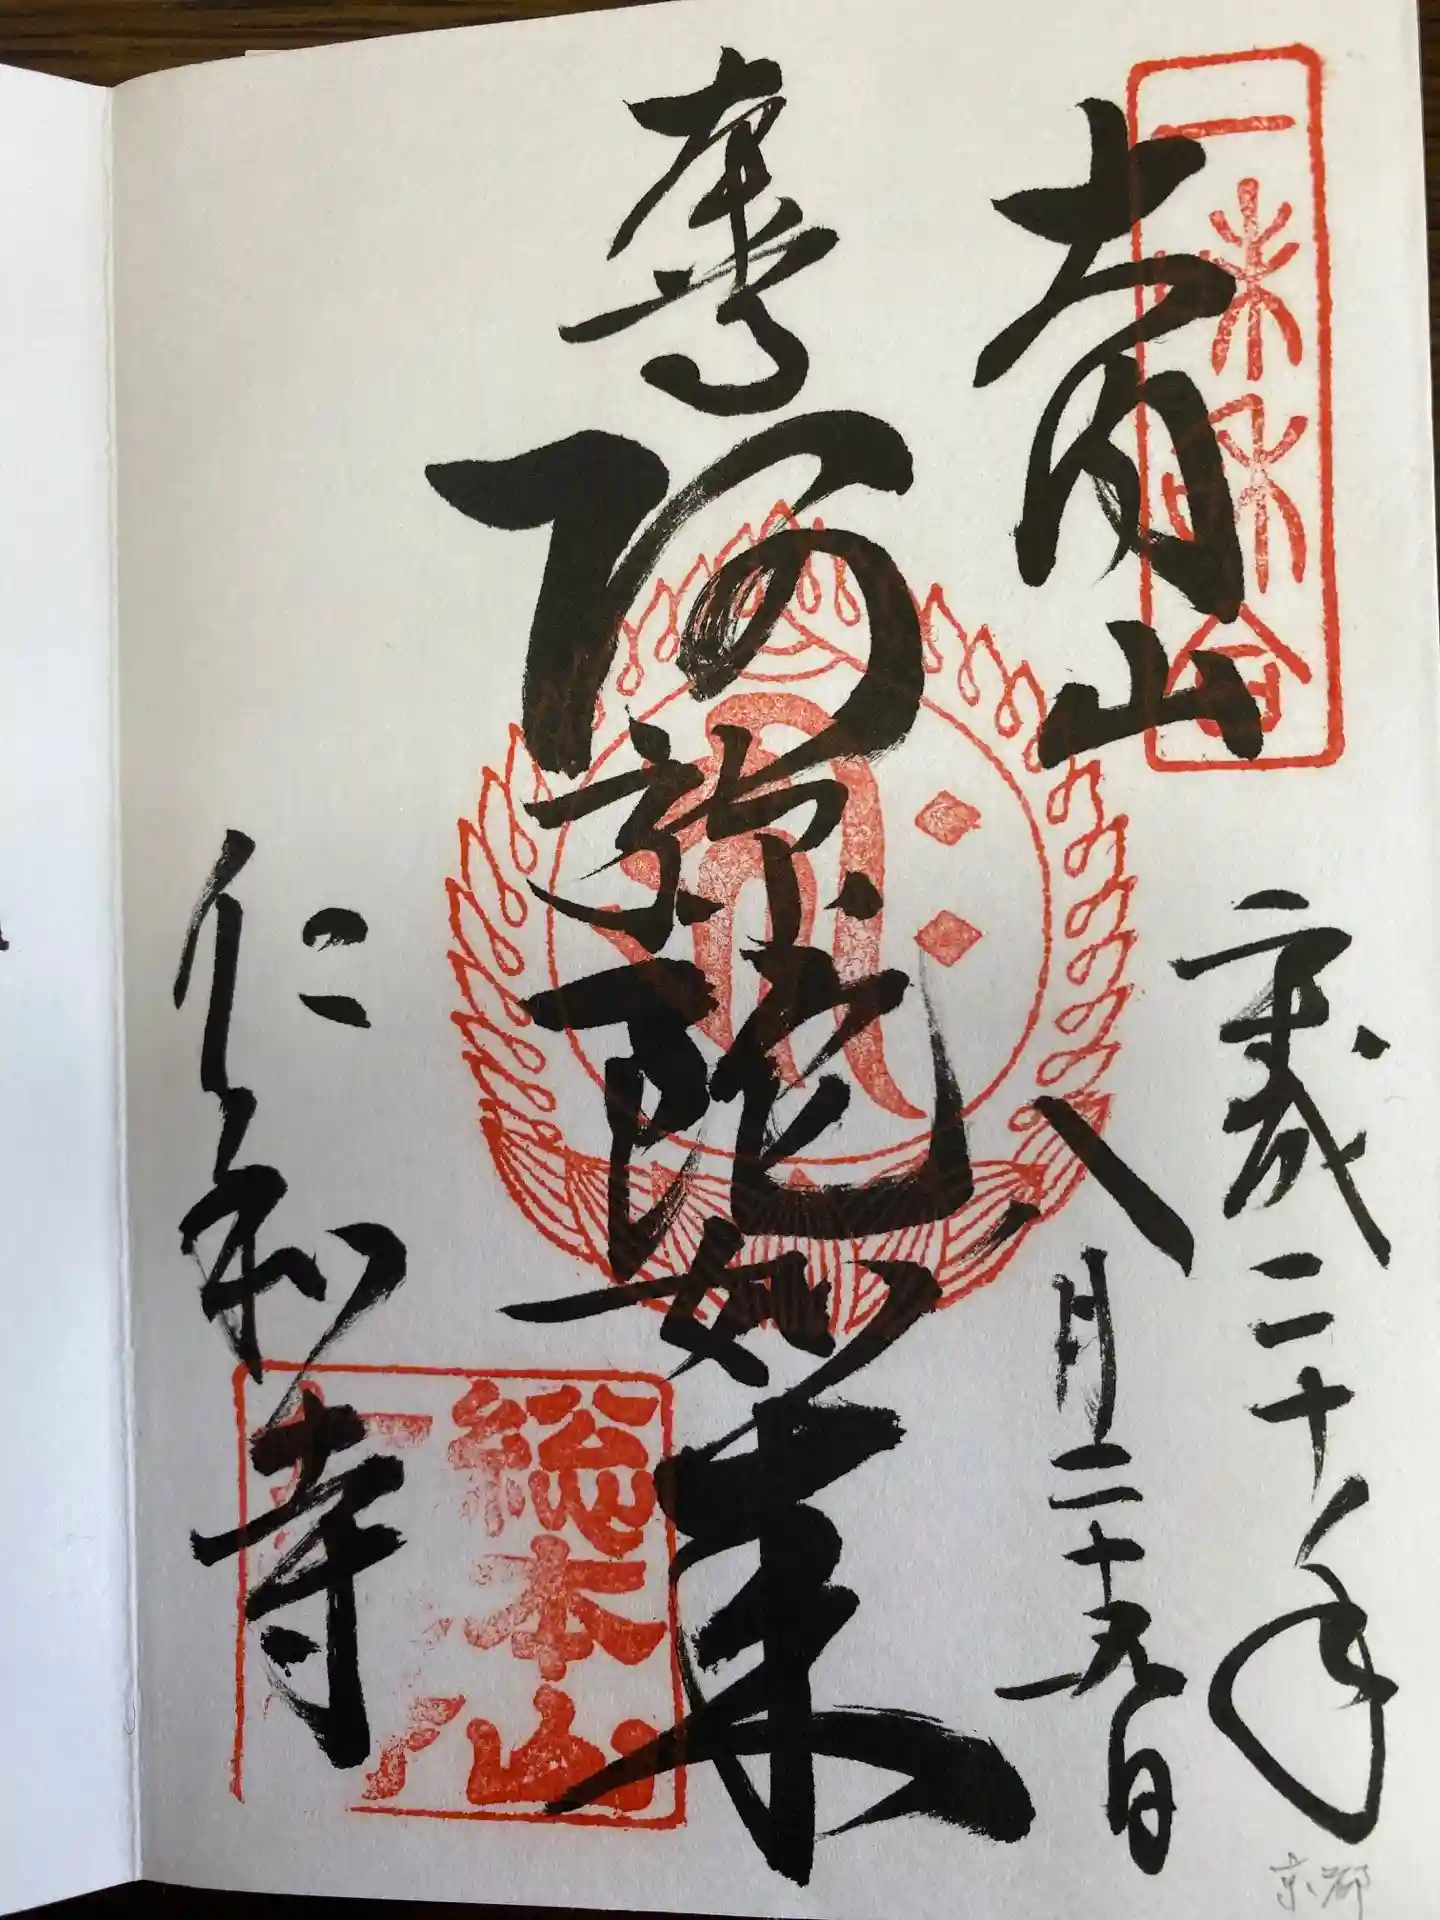 一味和合
大内山
平成二十年
八月二十九日
本尊
阿弥陀如来
仁和寺
総本山
京都